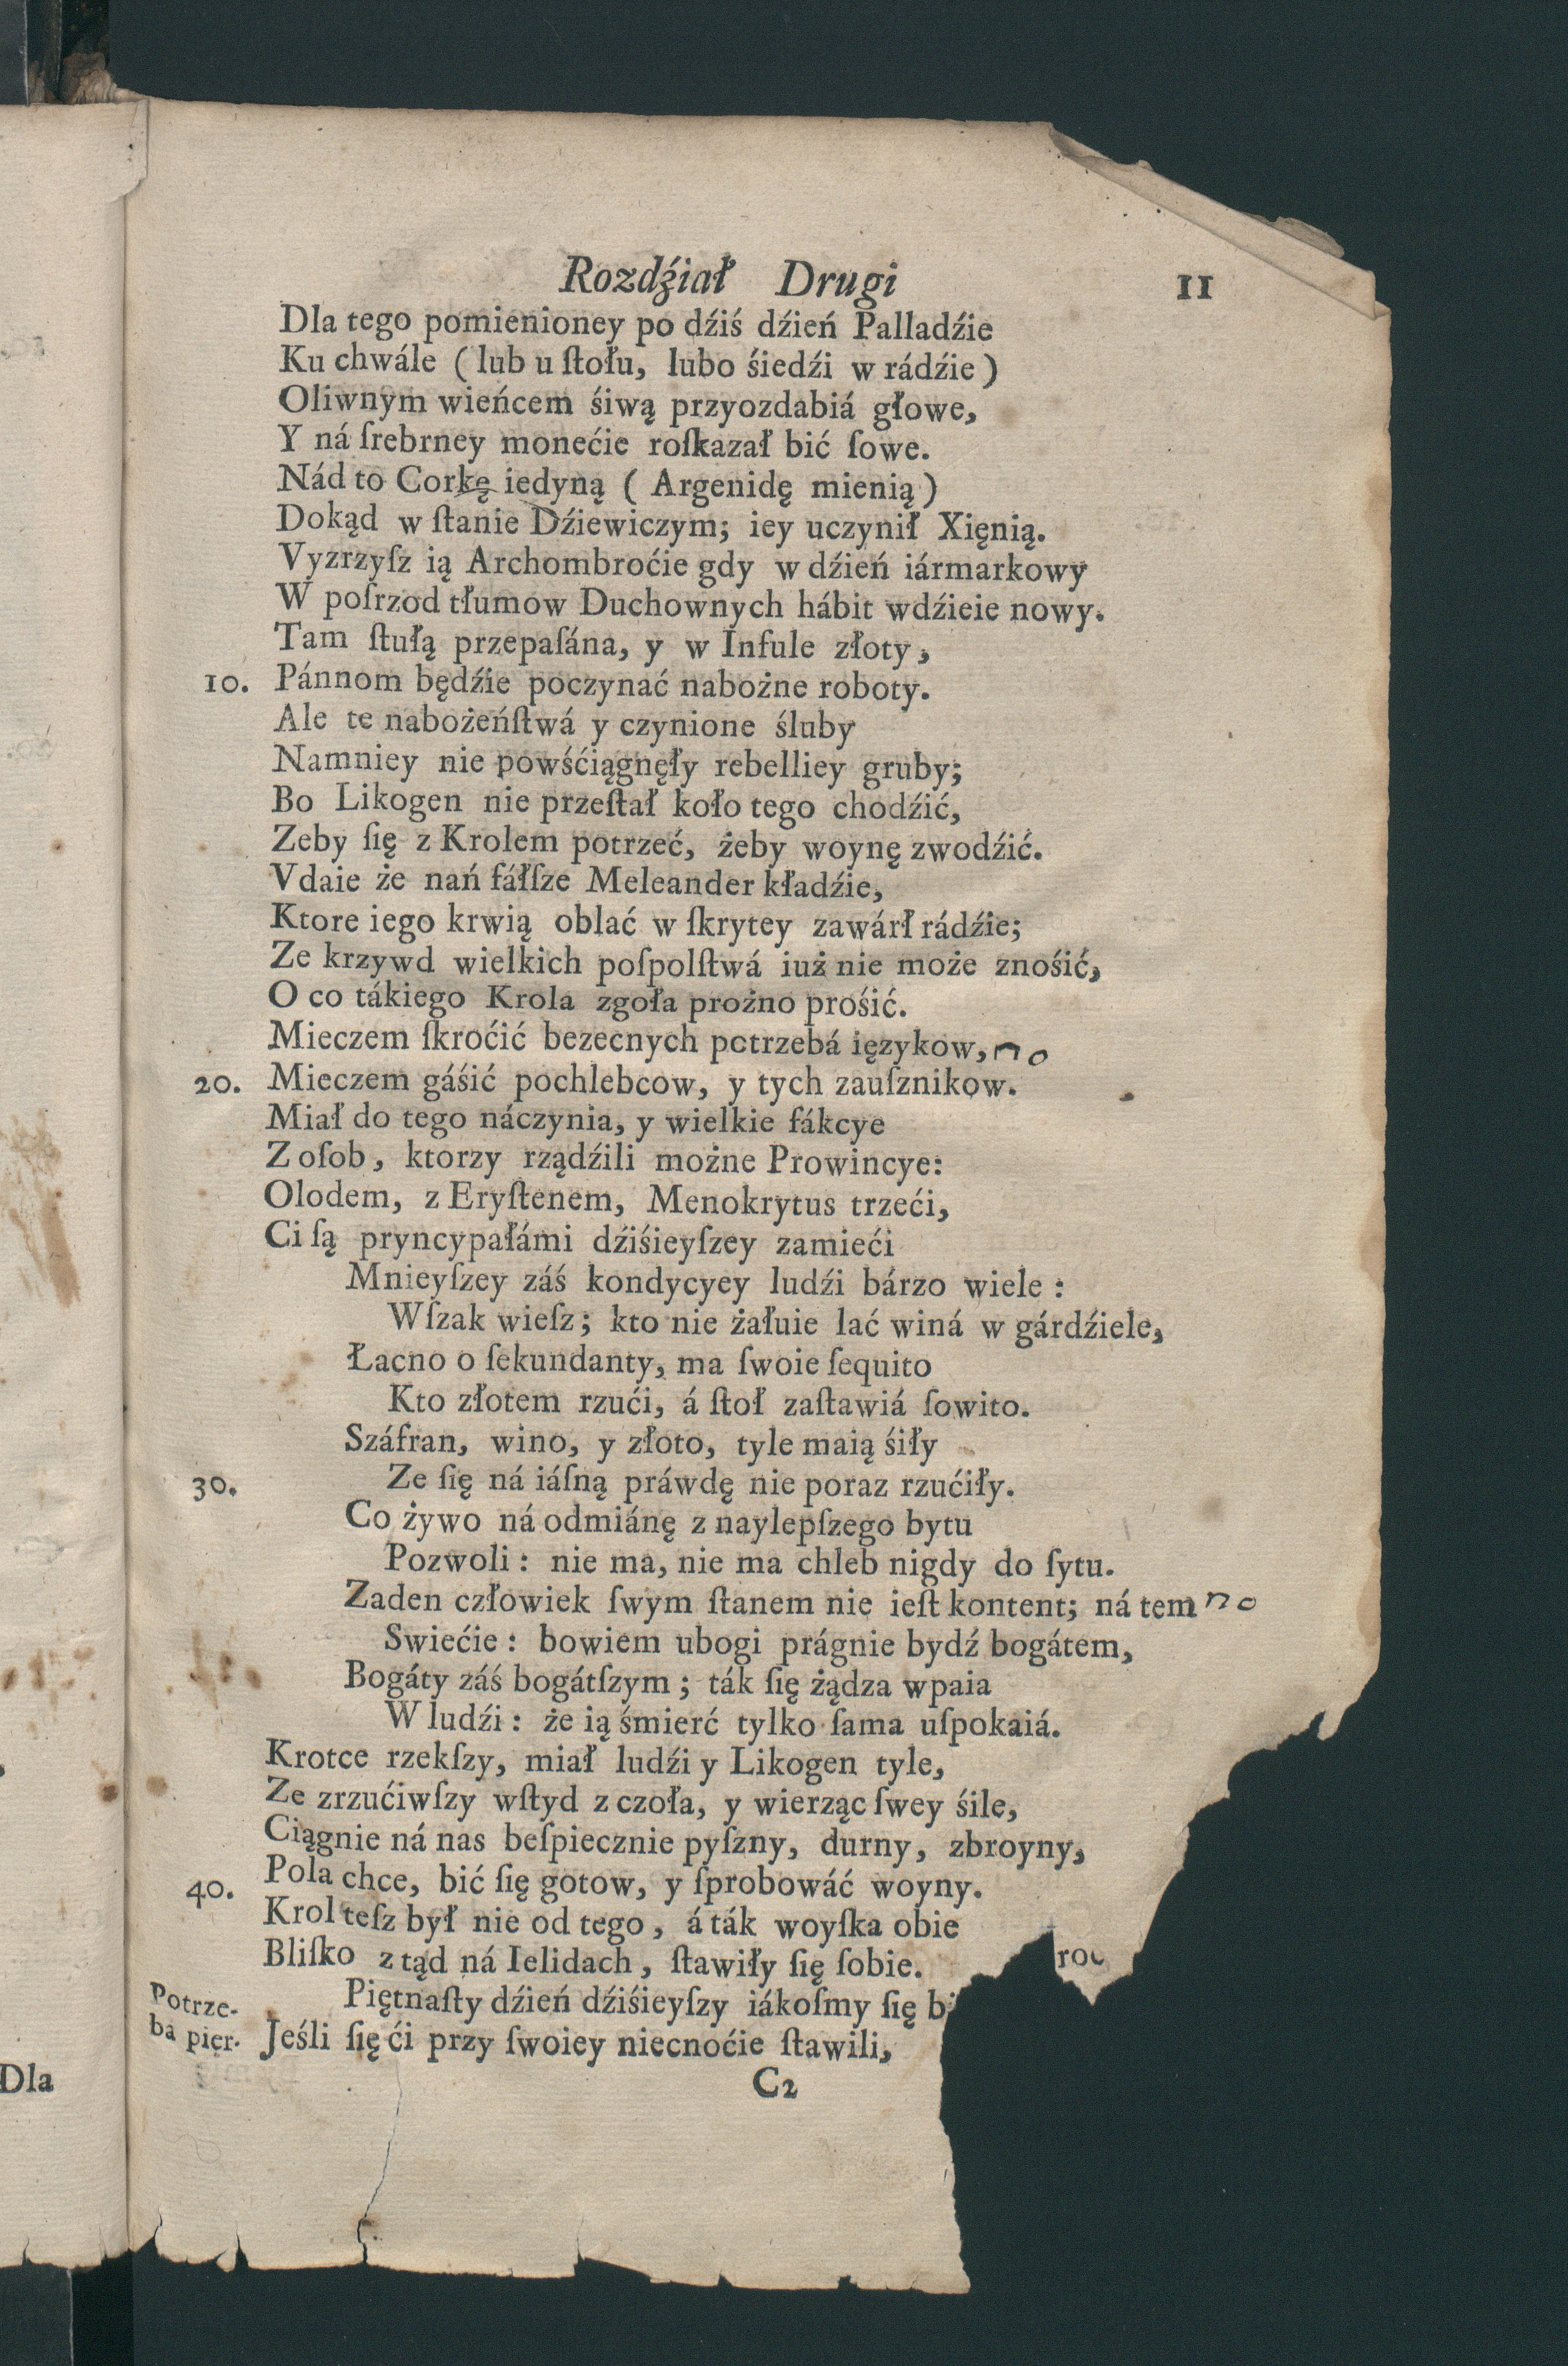 Rozdźiał Drugi 11
Dla tego pomienioney po dźiś dźień Palladźie
Ku chwále ( lub u ſtołu, lubo śiedźi w rádźie )
Oliwnym wieńcem śiwą przyozdabiá głowe,
Y ná ſrebrney monećie roſkazał bić ſowe.
Nád to Corkę iedyną ( Argenidę mienią )
Dokąd w ſtanie Dźiewiczym; iey uczynił Xięnią.
Vyzrzyſz ią Archombroćie gdy w dźień iármarkowy
W poſrzod tłumow Duchownych hábit wdźieie nowy.
Tam ſtułą przepaſána, y w Infule złoty,
10. Pánnom będźie poczynać nabożne roboty.
Ale te nabożeńſtwá y czynione śluby
Namniey nie powśćiągnęły rebelliey gruby;
Bo Likogen nie przeſtał koło tego chodźić,
Zeby ſię z Krolem potrzeć, żeby woynę zwodźić.
Vdaie że nań fáłſze Meleander kładźie,
Ktore iego krwią oblać w ſkrytey zawárł rádźie;
Ze krzywd wielkich poſpolſtwá iuż nie może znośić,
O co tákiego Krola zgoła prożno prośić.
Mieczem ſkroćić bezecnych potrzebá ięzykow, no
20. Mieczem gáśić pochlebcow, y tych zauſznikow.
Miał do tego náczynia, y wielkie fákcye
Z oſob, ktorzy rządźili możne Prowincye:
Olodem, z Eryſtenem, Menokrytus trzeći,
Ci ſą pryncypałámi dźiśieyſzey zamieći
Mnieyſzey záś kondycyey ludźi bárzo wiele :
Wſzak wieſz; kto nie żałuie lać winá w gárdźiele,
Łacno o ſekundanty, ma ſwoie ſequito
Kto złotem rzući, á ſtoł zaſtawiá ſowito.
Száfran, wino, y złoto, tyle maią śiły
30. Ze ſię ná iáſną práwdę nie poraz rzućiły.
Co żywo ná odmiánę z naylepſzego bytu
Pozwoli : nie ma, nie ma chleb nigdy do ſytu.
Zaden człowiek ſwym ſtanem nie ieſt kontent; ná tem no
Swiećie : bowiem ubogi prágnie bydź bogátem,
Bogáty záś bogátſzym ; ták ſię żądza wpaia
W ludźi : że ią śmierć tylko ſama uſpokaiá.
Krotce rzekſzy, miał ludźi y Likogen tyle,
Ze zrzućiwſzy wſtyd z czoła, y wierząc ſwey śile,
Ciągnie ná nas beſpiecznie pyſzny, durny, zbroyny,
40. Pola chce, bić ſię gotow, y ſprobowáć woyny.
Krol teſz był nie od tego, á ták woyſka obie
Bliſko z tąd ná Ielidach, ſtawiły ſię ſobie.
Potrze-
ba pier.
Piętnaſty dźień dźiśieyſzy iákoſmy ſię
Jeśli ſię ći przy ſwoiey niecnoćie ſtawili,
C2
Dla